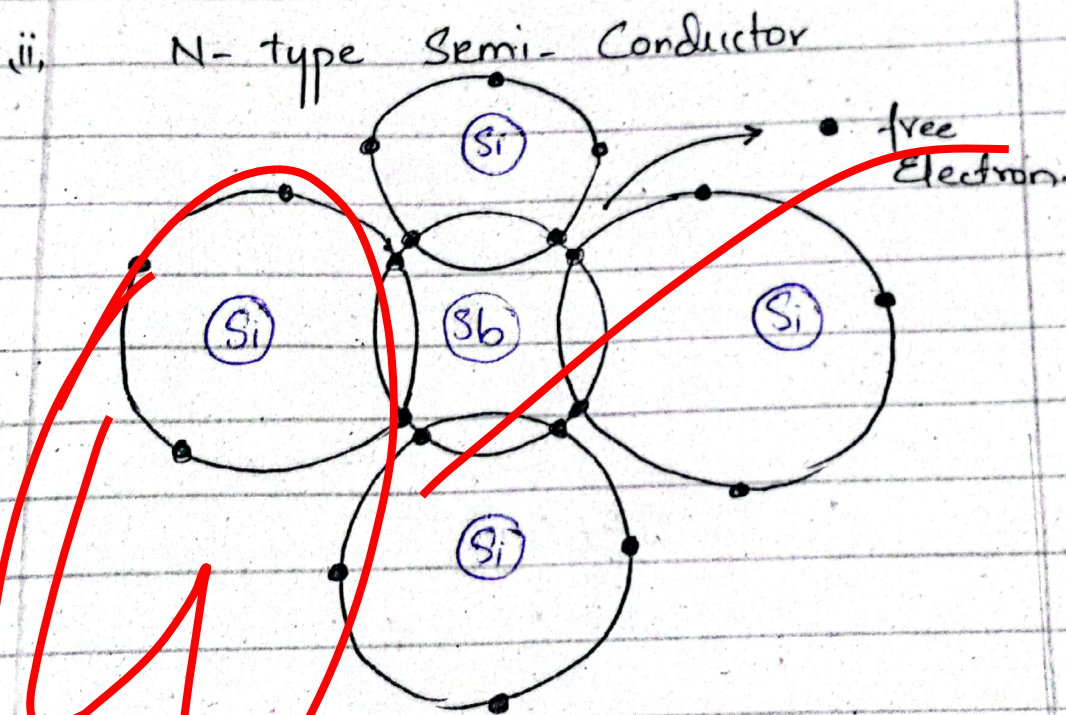 ii, N- type Semi- Conductor
Si
free
Electron.
Si
Sb
Si
Si